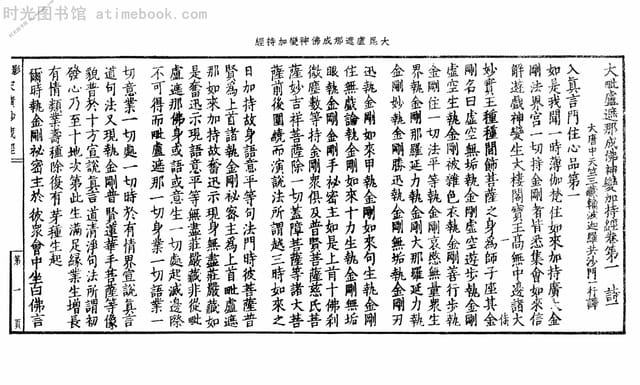 时光图书馆-atimebook.com
大毘盧遮那成佛神變加持經
大毗盧遮那成佛神變加持經卷第一 詩
大唐中天竺三藏輸波迦羅共沙門一行譯
入真言門住心品第一
如是我聞一時薄伽梵住如來加持廣大金
剛法界宮一切持金剛者皆悉集會如來信
解遊戲神變生大樓閣寶王高無中邊諸大
妙寶王種種間飾菩薩之身為師子座其金
剛名曰虛空無垢執金剛虛空遊步執金剛
虛空生執金剛被雜色衣執金剛善行步執
金剛住一切法平等執金剛哀愍無量眾生
界執金剛那羅延力執金剛大那羅延力執
金剛妙執金剛勝迅執金剛無垢執金剛刃
迅執金剛如來甲執金剛如來句生執金剛
住無戲論執金剛如來十力生執金剛無垢
眼執金剛金剛手秘密主如是上首十佛剎
微塵數等持金剛眾俱及普賢菩薩慈氏菩
薩妙吉祥菩薩除一切蓋障菩薩等諸大菩
薩前後圍繞而演說法所謂越三時如來之
日加持故身語意平等句法門時彼菩薩普
賢為上首諸執金剛秘密主為上首毗盧遮
那如來加持故奮迅示現身無盡莊嚴藏如
是奮迅示現語意平等無盡莊嚴藏非從毗
盧遮那佛身或語或意生一切處起滅邊際
不可得而毗盧遮那一切身業一切語業一
切意業一切處一切時於有情界宣說真言
道句法又現執金剛普賢蓮華手菩薩等像
貌普於十方宣說真言道清淨句法所謂初
發心乃至十地次第此生滿足緣業生增長
有情類業壽種除復有芽種生起
爾時執金剛秘密主於彼眾會中坐白佛言
第一頁